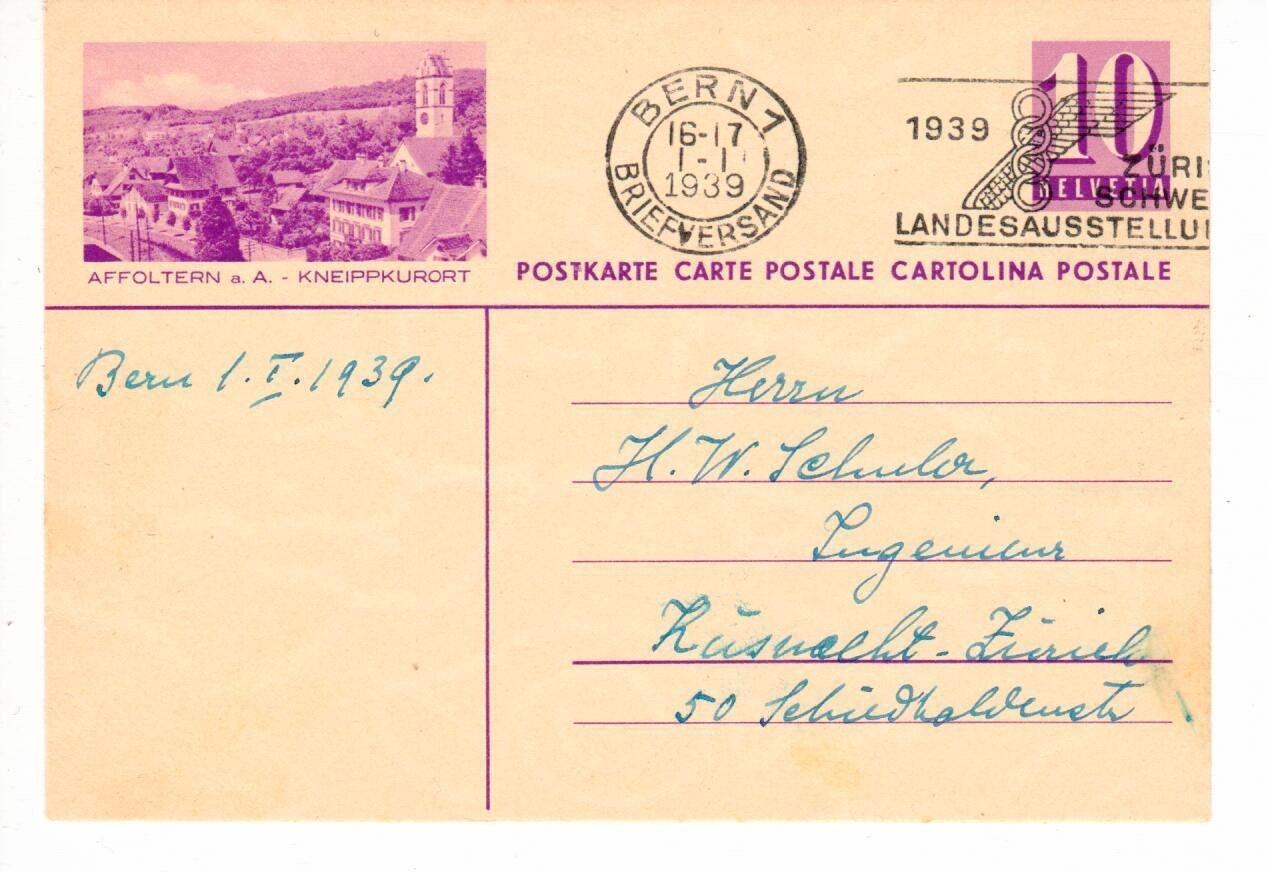 AFFOLTERN a. A. - KNEIPPKURORT
BERN 1
16-17
1-1
1939
BRIEFVERSAND
1939
10
HELVETIA
ZÜRI
SCHWE
LANDESAUSSTELLU
POSTKARTE CARTE POSTALE CARTOLINA POSTALE
Bern 1. I. 1939.
Herrn
H. W. Schuler,
Ingenieur
Küsnacht-Zürich
50 Schiedhaldenstr